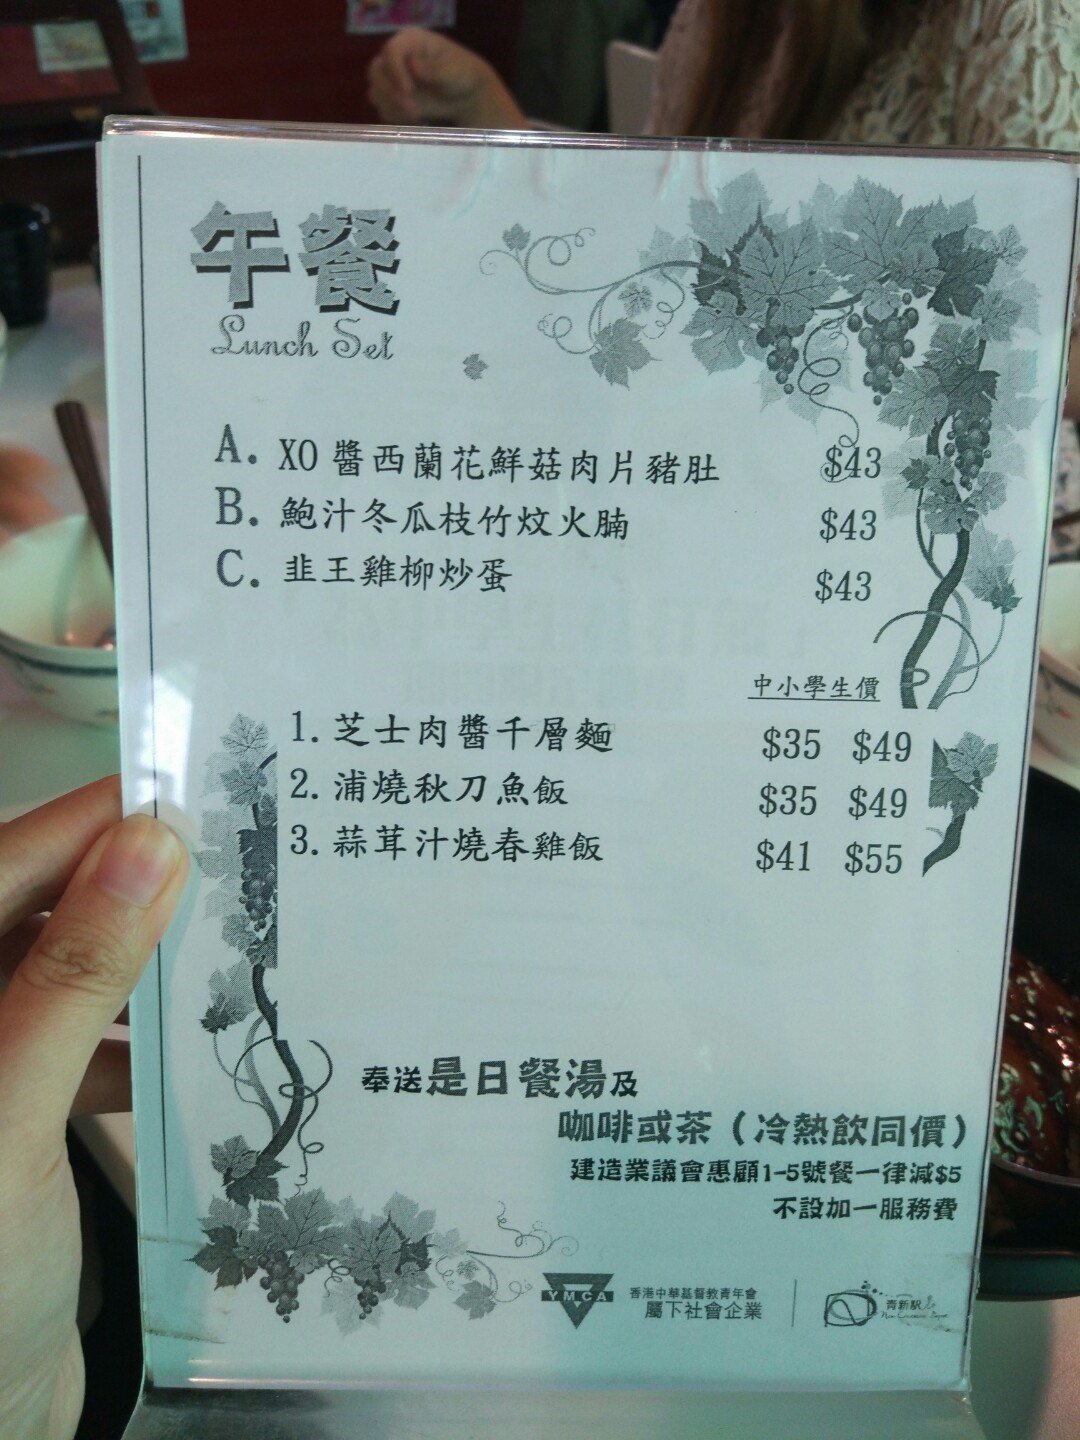 午餐
Lunch Set
A. XO 醬西蘭花鮮菇肉片豬肚 $43
B. 鮑汁冬瓜枝竹炆火腩 $43
C. 韭王雞柳炒蛋 $43
中小學生價
1. 芝士肉醬千層麵 $35 $49
2. 浦燒秋刀魚飯 $35 $49
3. 蒜茸汁燒春雞飯 $41 $55
奉送是日餐湯及
咖啡或茶（冷熱飲同價）
建造業議會惠顧1-5號餐一律減$5
不設加一服務費
YMCA
香港中華基督教青年會
屬下社會企業
青新駅